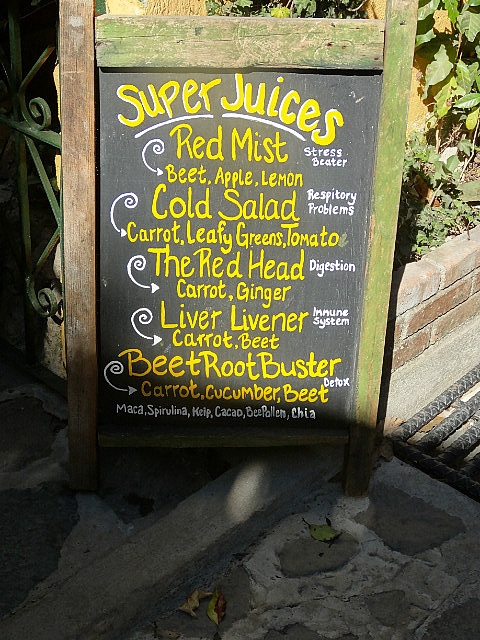 Super Juices
Red Mist
Stress
Beater
Beet, Apple, Lemon
Cold Salad
Respitory
Problems
Carrot, Leafy Greens, Tomato
The Red Head
Digestion
Carrot, Ginger
Liver Livener
Immune
System
Carrot, Beet
BeetRootBuster
Detox
Carrot, Cucumber, Beet
Maca, Spirulina, Kelp, Cacao, BeePollen, Chia